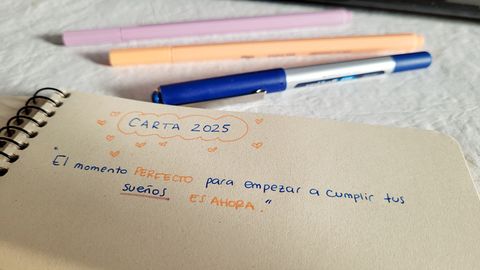 CARTA 2025
"El momento PERFECTO para empezar a cumplir tus
sueños ES AHORA."